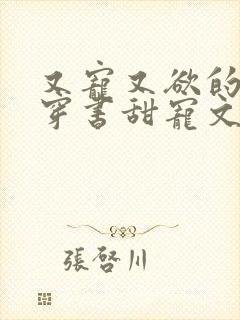 又寵又欲的
穿書甜寵文
張啓川